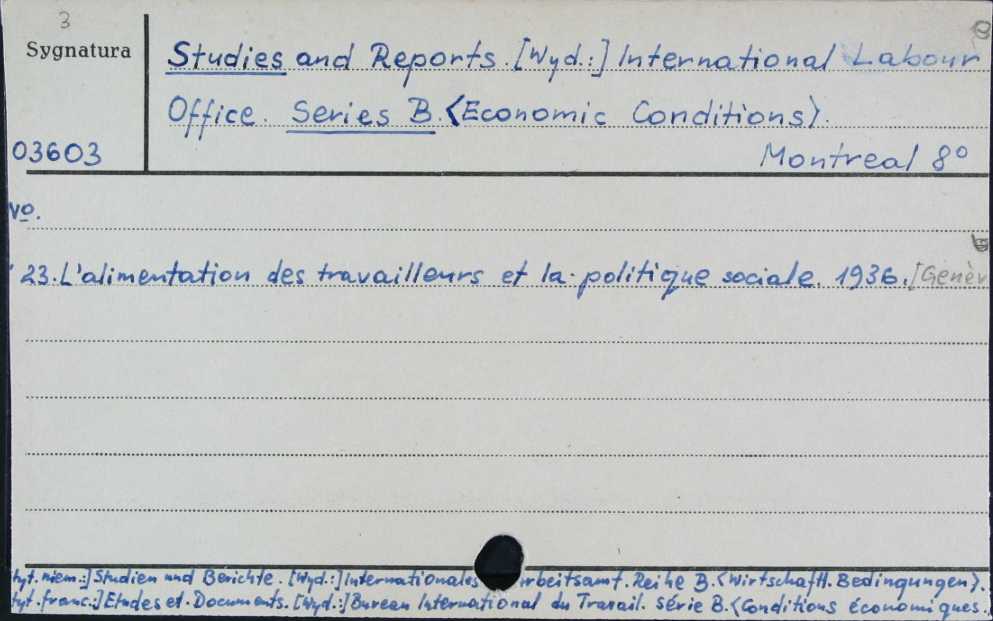 3
Sygnatura
Studies and Reports. [Wyd.:] International Labour
Office. Series B. <Economic Conditions>.
03603
Montreal 8º
Nº.
23. L'alimentation des travailleurs et la politique sociale. 1936. [Genèv
tyt. niem.:] Studien und Berichte. [Wyd.:] Internationales rbeitsamt. Reihe B. <Wirtschaftl. Bedingungen>.
tyt. franc.:] Etudes et Documents. [Wyd.:] Bureau International du Travail. Série B. <Conditions économiques.